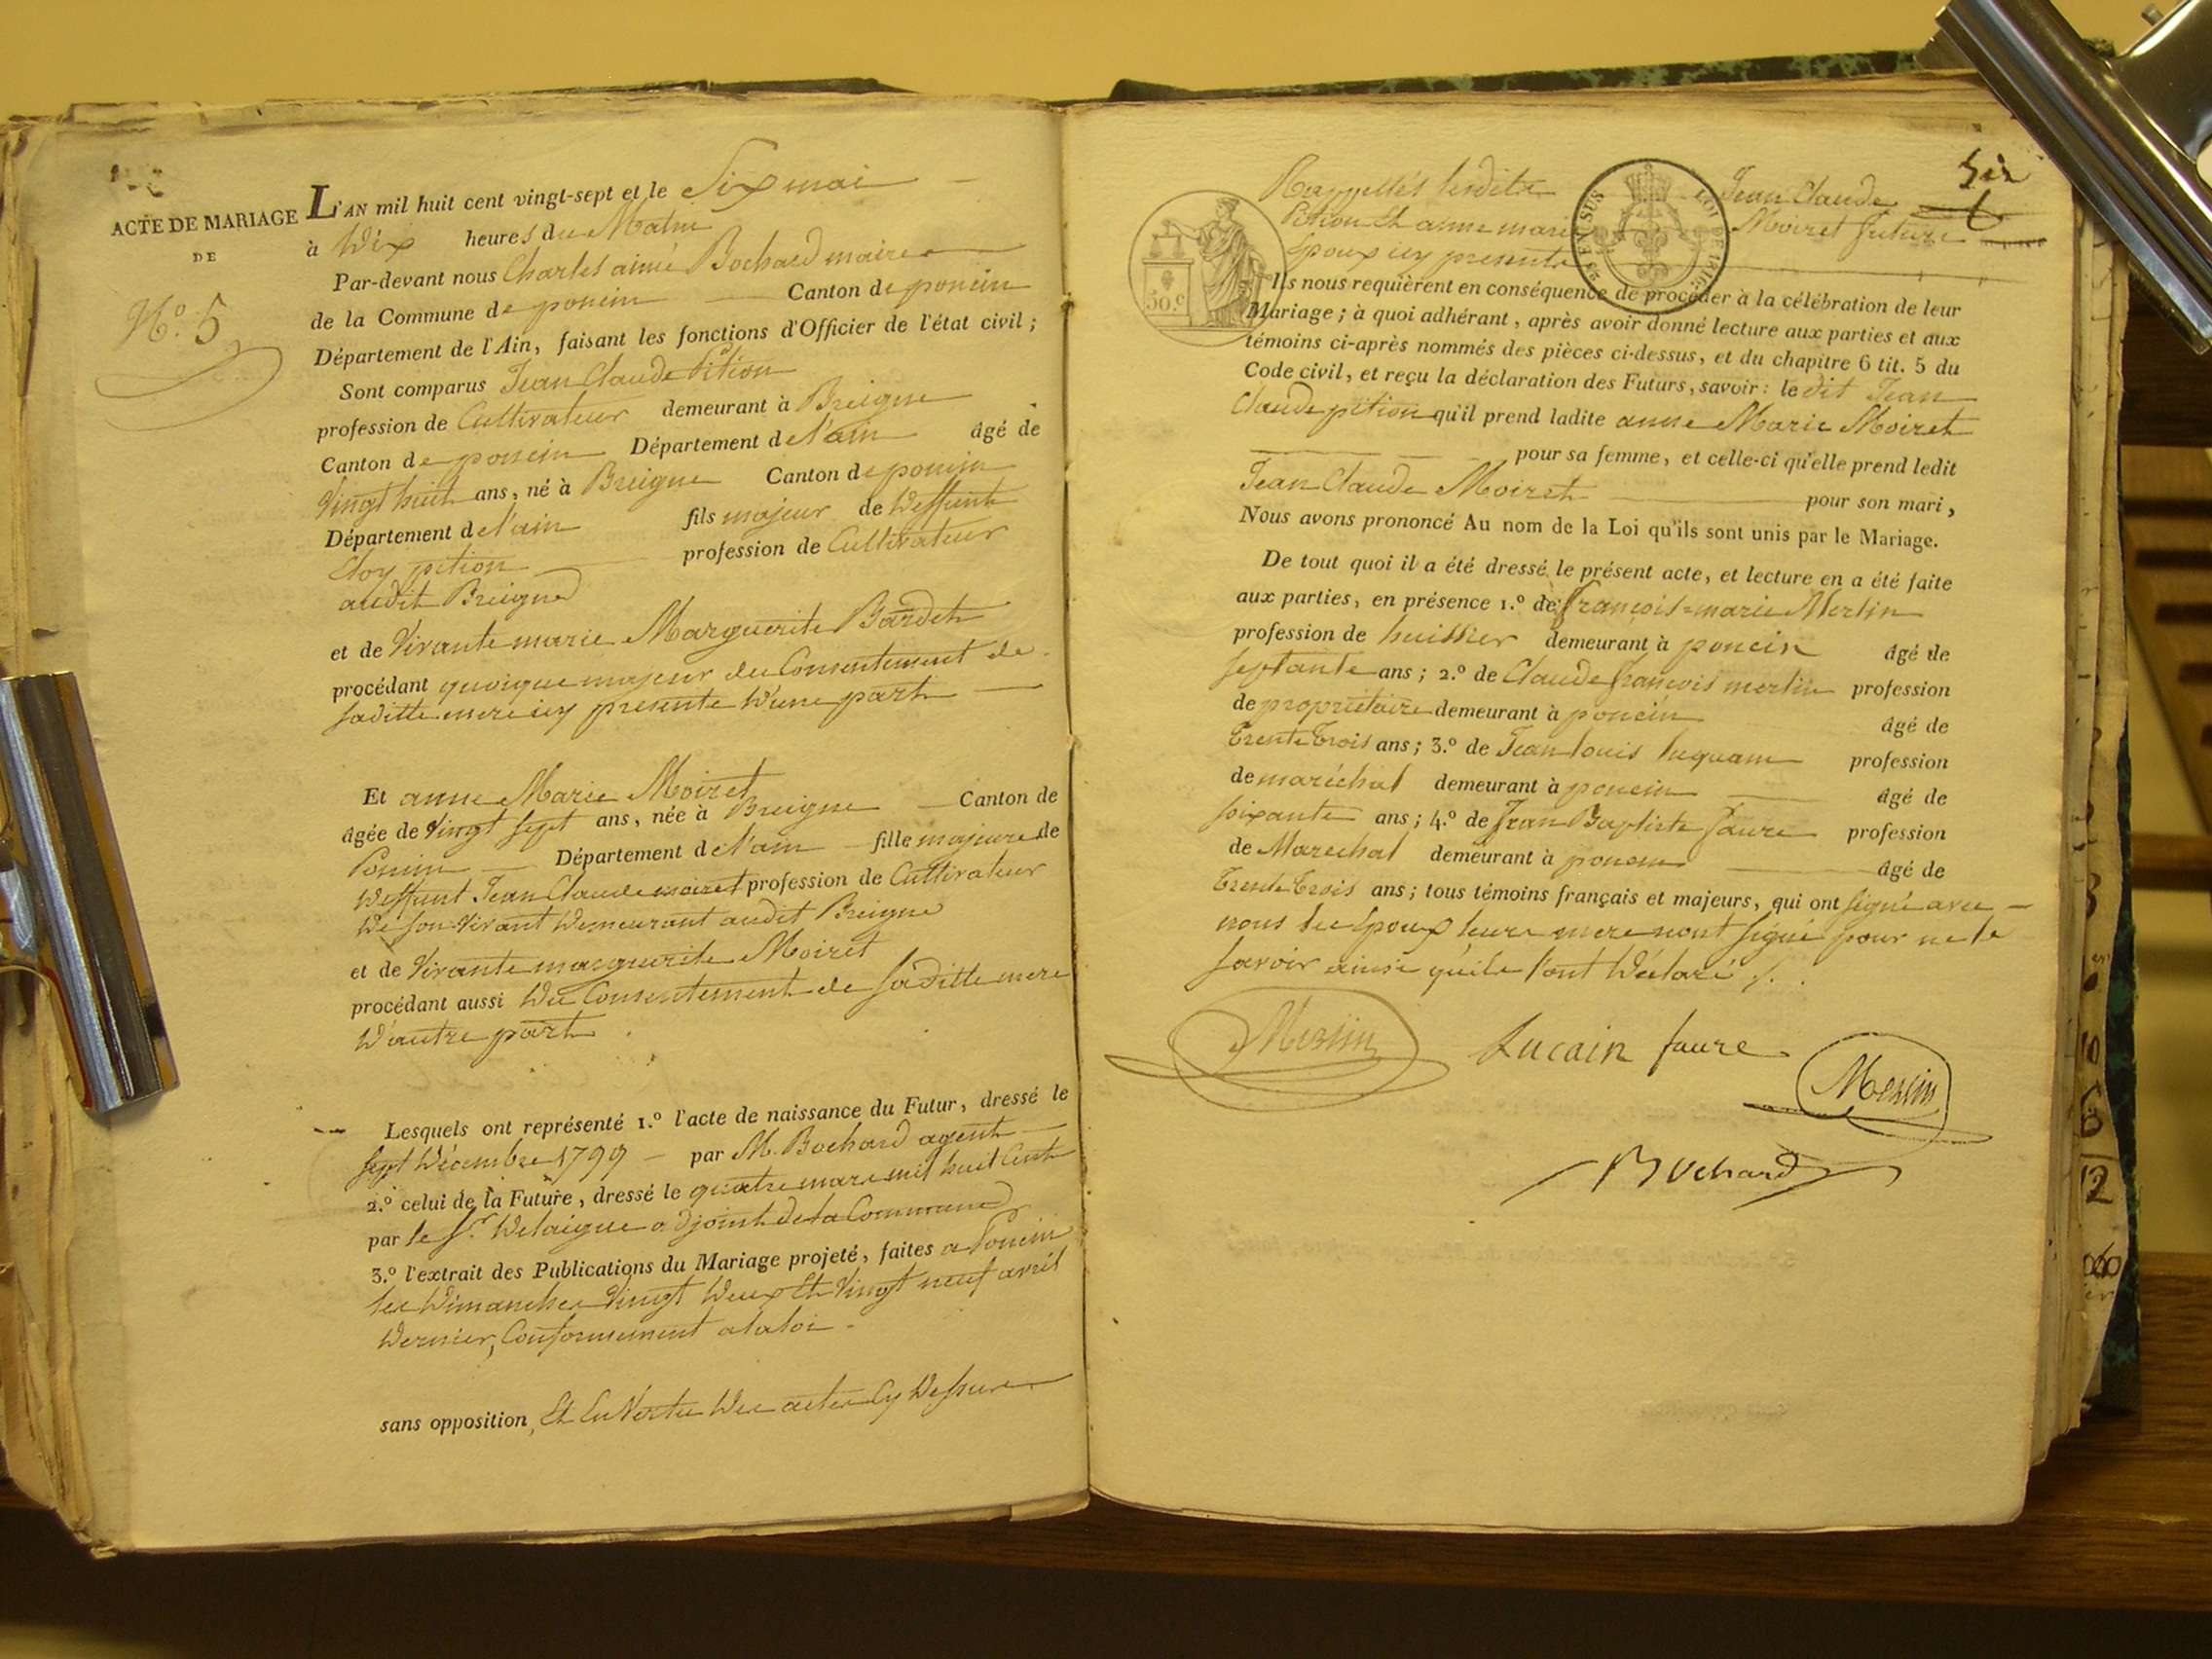 ACTE DE MARIAGE
DE
N.o 5
L'AN mil huit cent vingt-sept et le Six mai
à Dix heures du Matin
Par-devant nous Charles aimé Bochard maire
de la Commune de poncin Canton de poncin
Département de l'Ain, faisant les fonctions d'Officier de l'état civil ;
Sont comparus Jean Claude Pition
profession de Cultivateur demeurant à Breigne
Canton de poncin Département de l'ain âgé de
Vingt huit ans, né à Breigne Canton de poncin
Département de l'ain fils majeur de Deffunt
Eloy pition profession de Cultivateur
audit Breigne
et de Vivante marie Marguerite Bardet
procédant quoique majeur du Consentement de
saditte mere icy presente D'une part
Et anne Marie Moiret
âgée de Vingt sept ans, née à Breigne Canton de
Poncin Département de l'ain fille majeure de
Deffunt Jean Claude moiret profession de Cultivateur
De son vivant Demeurant audit Breigne
et de Vivante marguerite Moiret
procédant aussi Du Consentement de saditte mere
D'autre part
Lesquels ont représenté 1.º l'acte de naissance du Futur, dressé le
sept Décembre 1799 par M. Bochard agent
2.º celui de la Future, dressé le quatre mars mil huit Cent
par le Sr. Delaigue adjoint de la Commune
3.º l'extrait des Publications du Mariage projeté, faites a Poncin
les Dimanches Vingt Deux Et Vingt neuf avril
Dernier, Conformement a la loi
sans opposition, Et En Vertu Des actes Cy Dessus
Six
Rappellés lesdits Jean Claude
Pition Et anne marie Moiret future
Epoux icy presents
23 EN SUS LOI DE 1816
50.c
Ils nous requièrent en conséquence de procéder à la célébration de leur
Mariage ; à quoi adhérant, après avoir donné lecture aux parties et aux
témoins ci-après nommés des pièces ci-dessus, et du chapitre 6 tit. 5 du
Code civil, et reçu la déclaration des Futurs, savoir : le dit Jean
Claude pition qu'il prend ladite anne Marie Moiret
pour sa femme, et celle-ci qu'elle prend ledit
Jean Claude Moiret pour son mari,
Nous avons prononcé Au nom de la Loi qu'ils sont unis par le Mariage.
De tout quoi il a été dressé le présent acte, et lecture en a été faite
aux parties, en présence 1.º de françois-marie Merlin
profession de huissier demeurant à poncin âgé de
septante ans ; 2.º de Claude françois merlin profession
de propriétaire demeurant à poncin âgé de
Trente Trois ans ; 3.º de Jean louis luquain profession
de maréchal demeurant à poncin âgé de
soixante ans ; 4.º de Jean Baptiste faure profession
de Marechal demeurant à poncin âgé de
Trente Trois ans ; tous témoins français et majeurs, qui ont signé avec
nous les Epoux leurs mere n'ont signé pour ne le
savoir ainsi qu'ils l'ont Déclaré
Merlin Lucain faure
Merlin
Bochard